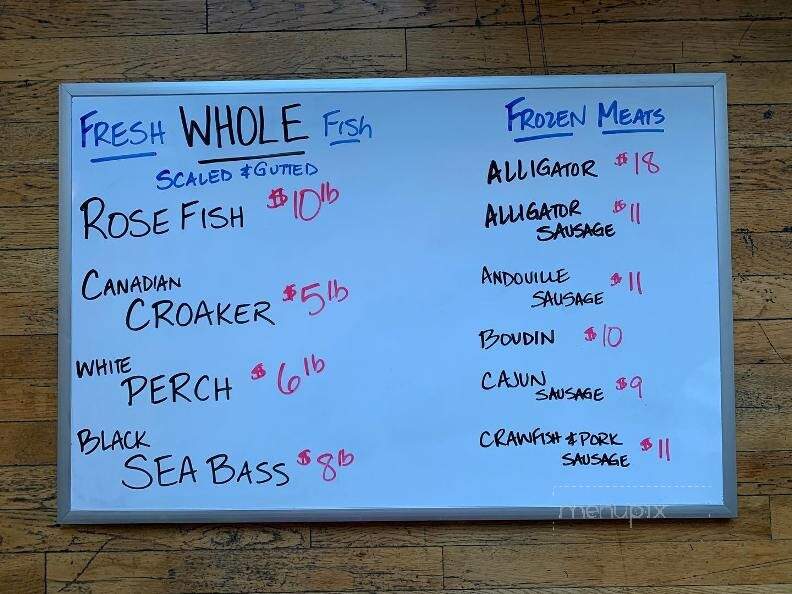 FRESH WHOLE FISh
SCALED & GUTTED
ROSE FISH $10 lb
CANADIAN
CROAKER $5 lb
WHITE
PERCH $6 lb
BLACK
SEA BASS $8 lb
FROZEN MEATS
ALLIGATOR $18
ALLIGATOR $11
SAUSAGE
ANDOUILLE $11
SAUSAGE
BOUDIN $10
CAJUN $9
SAUSAGE
CRAWFISH & PORK $11
SAUSAGE
menupix